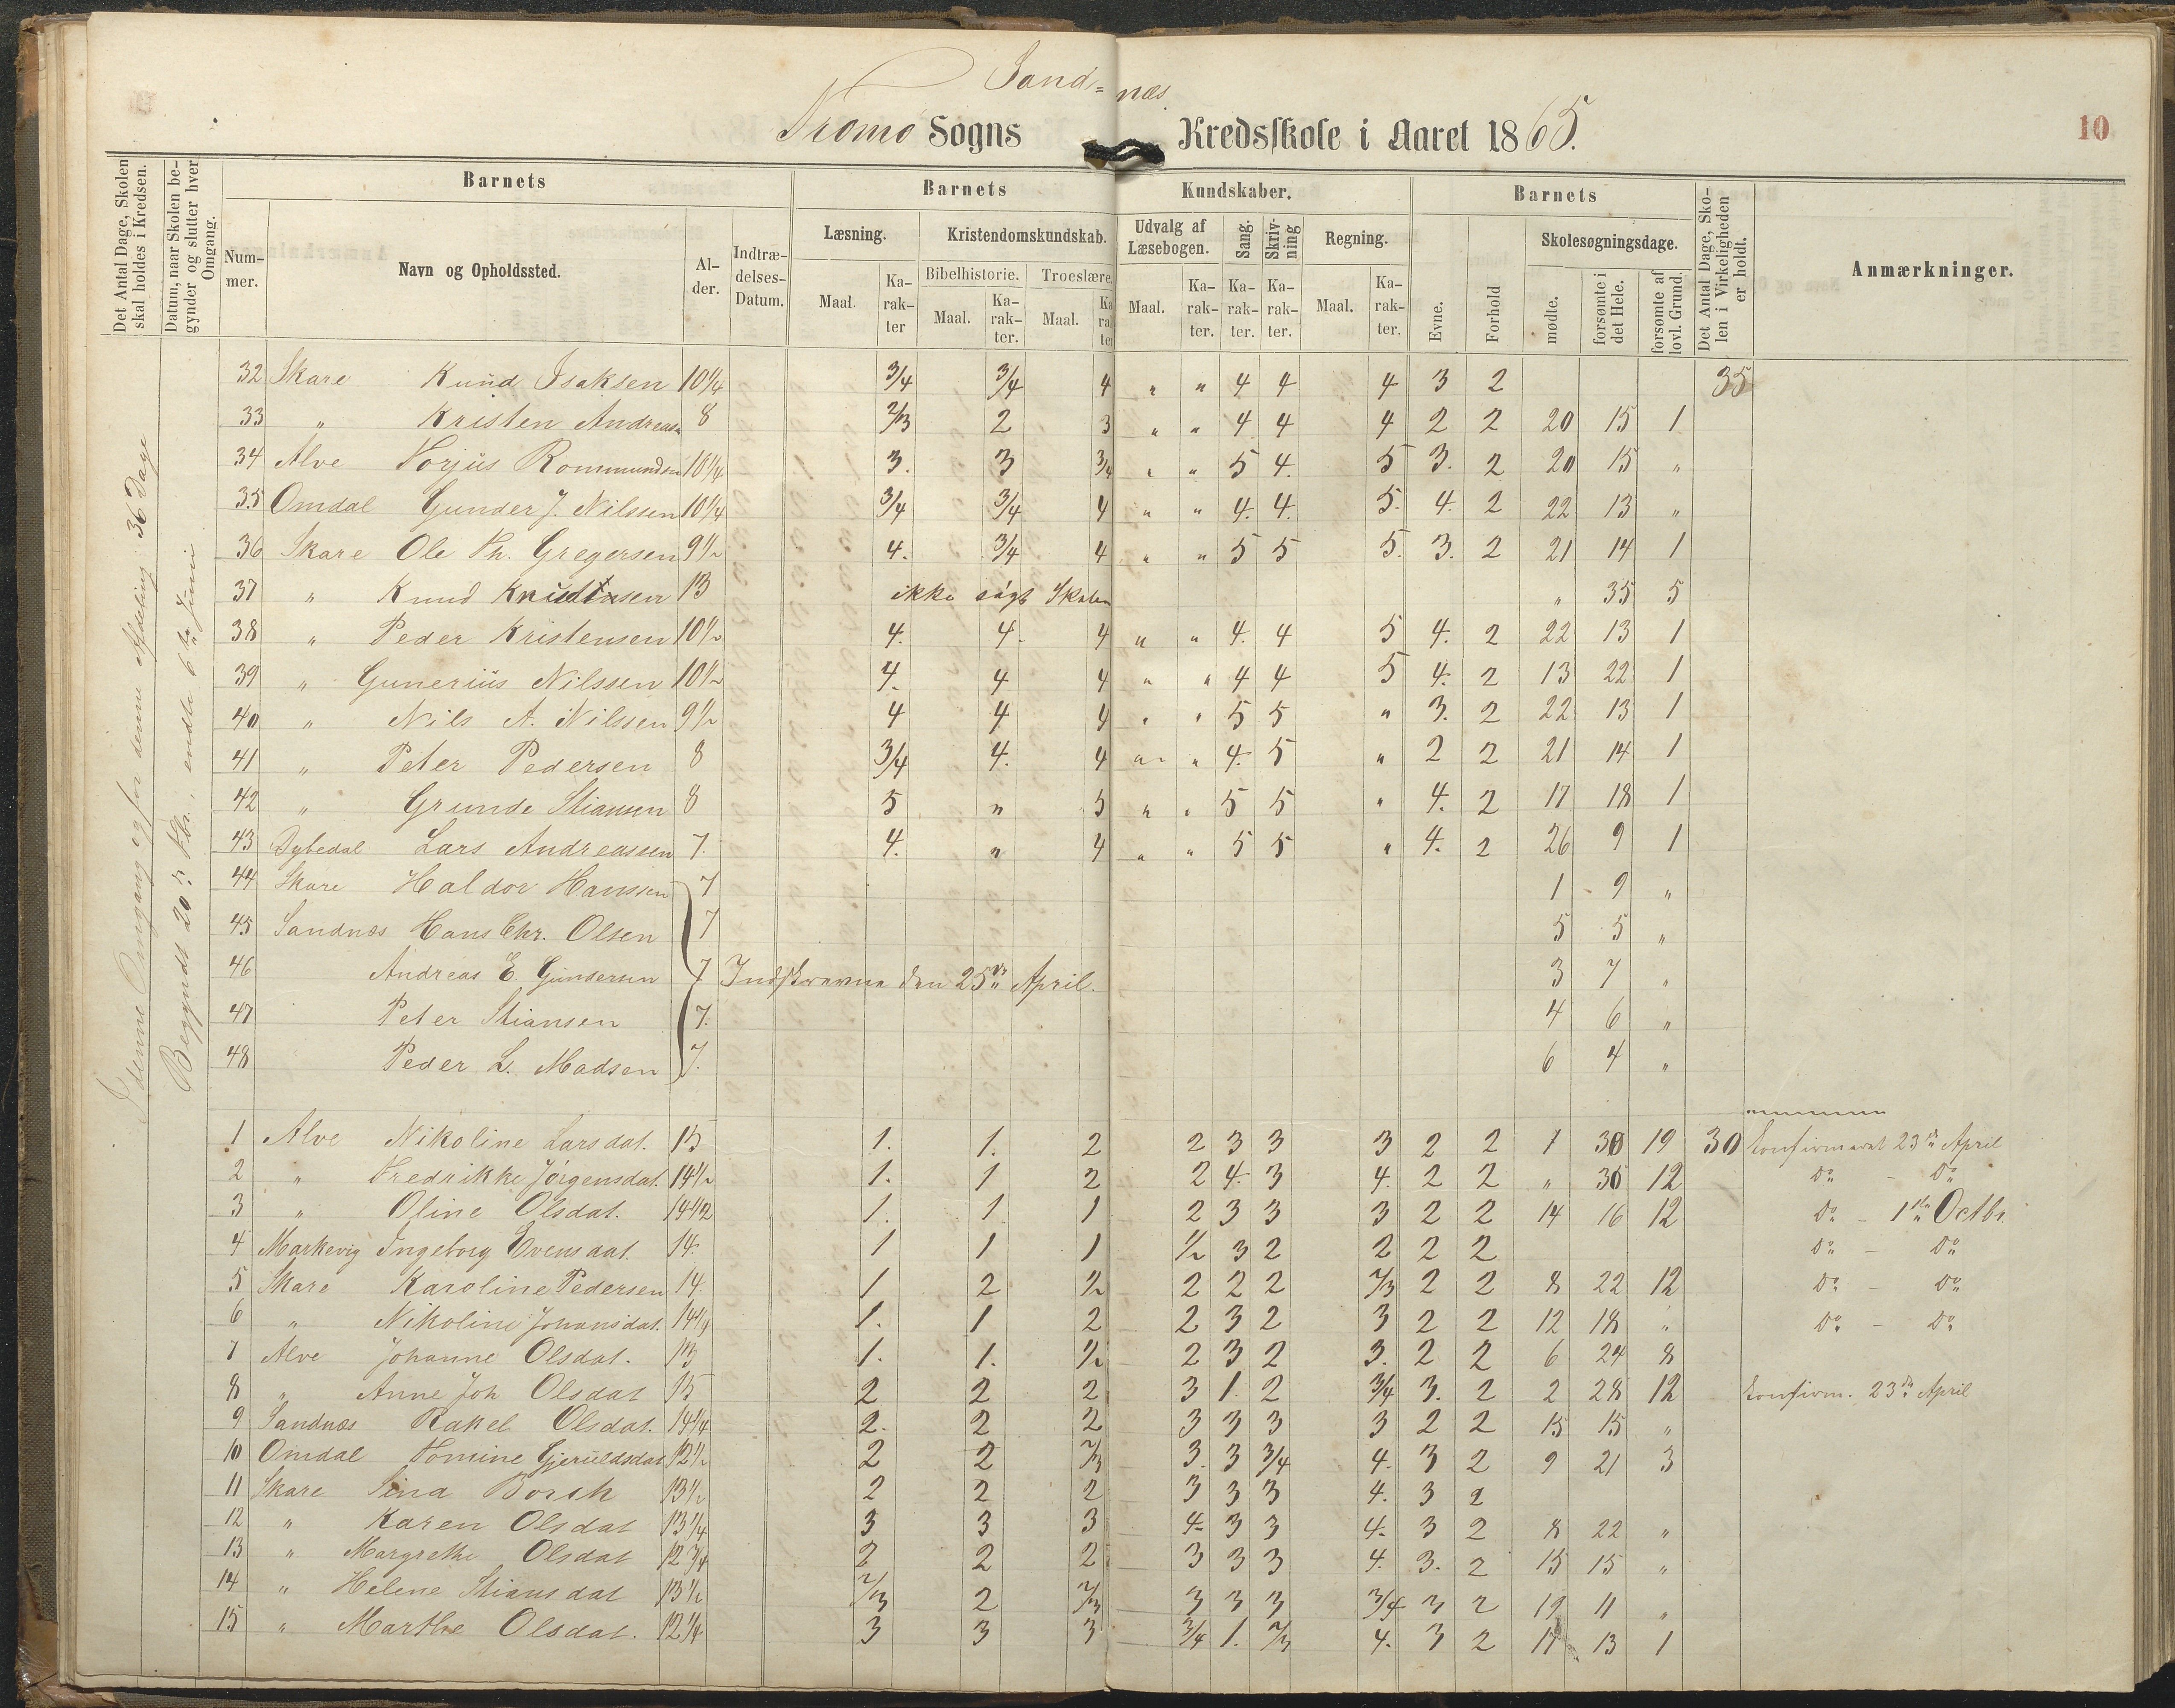 Sand= næs
Tromø Sogns Kredsskole i Aaret 1865.
10
Det Antal Dage, Skolen skal holdes i Kredsen.
Datum, naar Skolen begynder og slutter hver Omgang.
Barnets
Barnets
Kundskaber.
Barnets
Det Antal Dage, Skolen i Virkeligheden er holdt.
Anmærkninger.
Nummer.
Navn og Opholdssted.
Alder.
Indtrædelses-Datum.
Læsning.
Kristendomskundskab.
Udvalg af Læsebogen.
Sang.
Skrivning
Regning.
Evne.
Forhold
Skolesøgningsdage.
Bibelhistorie.
Troeslære.
Maal.
Karakter
Maal.
Karakter.
Maal.
Karakter
Maal.
Karakter.
Karakter.
Karakter.
Maal.
Karakter.
mødte.
forsømte i det Hele.
forsømte af lovl. Grund.
I denne Omgang og for denne Afdeling: 36 Dage
Begyndt 20de Fbr., endte 6te Juni
32 Skare Knud Isaksen 10 1/4 3/4 3/4 4 " " 4 4 4 3 2 35
33 " Kristen Andreasn 8 2/3 2 3 " " 4 4 4 2 2 20 15 1
34 Alve Torjus Rommundsen 10 1/4 3. 3 3/4 " " 5 4. 5 3. 2 20 15 "
35 Omdal Gunder J. Nilssen 10 1/4 3/4 3/4 4 " " 4. 4. 5. 4. 2 22 13 "
36 Skare Ole Th. Gregersen 9 1/2 4. 3/4 4 " " 5 5 5. 3. 2 21 14 1
37 " Knud 13 ikke søgt Skolen " 35 5
38 " Peder Kristensen 10 1/2 4. 4. 4 " " 4. 4 5 4. 2 22 13 1
39 " Gunerius Nilssen 10 1/2 4. 4 4 " " 4 4 5 4. 2 13 22 1
40 " Nils A. Nilssen 9 1/2 4 4 4 " " 5 5 " 3. 2 22 13 1
41 " Peter Pedersen 8 3/4 4. 4 " " 4. 5 " 2 2 21 14 1
42 " Grunde Stiansen 8 5 " 5 " " 5 5 " 4. 2 17 18 1
43 Dybedal Lars Andreassen 7. 4. " 4 " " 5 5 " 4. 2 26 9 1
44 Skare Haldor Hanssen 7 1 9 "
45 Sandnæs Hans Chr. Olsen 7 5 5 "
46 Andreas E. Gundersen 7 Indskrevne den 25de April. 3 7 "
47 Peter Stiansen 7. 4 6 "
48 Peder L. Madsen 7. 6 4 "
1 Alve Nikoline Larsdat. 15 1. 1. 2 2 3 3 3 2 2 1 30 19 30 Konfirmeret 23de April
2 " Fredrikke Jørgensdat. 14 1/2 1. 1 2 2 4. 3 4. 2 2 " 30 12 Do - Do
3 " Oline Olsdat. 14 1/2 1. 1 1 2 3 3 3 2 2 14 16 12 Do - 1ste Octbr.
4 Markevig Ingeborg Evensdat. 14. 1 1 1 1/2 3 2 2 2 2 Do - Do
5 Skare Karoline Pedersen 14. 1 2 1/2 2 2 2 2/3 2 2 8 22 12 Do - Do
6 " Nikoline Johansdat. 14 1/4 1. 1 2 2 3 2 3 2 2 12 18 " Do - Do
7 Alve Johanne Olsdat. 13 1. 1. 1/2 2 3 2 3. 2 2 6 24 8
8 " Anne Joh Olsdat 15 2 2 2 3 1. 2 3/4 3. 2 2 28 12 Konfirm. 23de April
9 Sandnæs Rakel Olsdat. 14 1/4 2. 2 2 3 3 3 3 2 2 15 15 "
10 Omdal Tomine Gjeruldsdat 12 1/2 2 2 2/3 3. 3 3/4 4. 3 2 9 21 3
11 Skare Sina Borsh 13 1/2 2 2 2 3 3 3 4. 3 2
12 " Karen Olsdat 13 1/4 3 3 3 4. 3 3 4. 3 2 8 22 "
13 " Margrethe Olsdat 12 3/4 2 2 2 3 3 3 4. 3. 2 15 15 "
14 " Helene Stiansdat 13 1/2 2/3 2 2/3 3 3 3 3/4 3 2 19 11 "
15 " Marthe Olsdat. 12 1/4 3 3 3 3/4 1. 2/3 4. 3 2 17 13 1